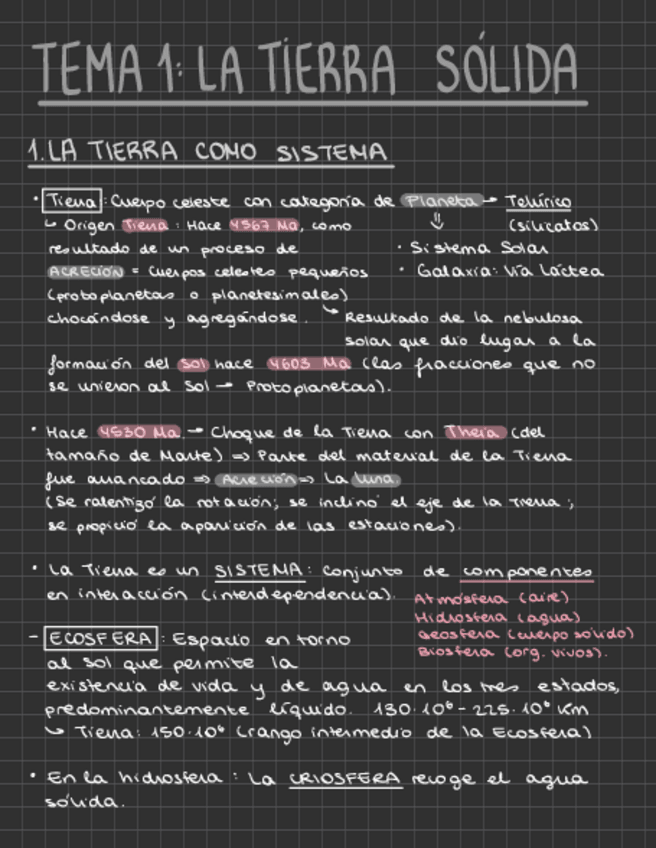 TEMA 1: LA TIERRA SÓLIDA
1. LA TIERRA COMO SISTEMA
• Tierra: Cuerpo celeste con categoría de Planeta → Telúrico
↳ Origen Tierra: Hace 4567 Ma, como ⇓ (silicatos)
resultado de un proceso de • Sistema Solar
ACRECIÓN = Cuerpos celestes pequeños • Galaxia: Vía Láctea
(protoplanetas o planetesimales)
chocándose y agregándose. ↳ Resultado de la nebulosa
solar que dio lugar a la
formación del Sol hace 4603 Ma (las fracciones que no
se unieron al Sol → Protoplanetas).
• Hace 4530 Ma → Choque de la Tierra con Theia (del
tamaño de Marte) ⇒ Parte del material de la Tierra
fue arrancado ⇒ Acreción ⇒ La Luna
(Se ralentizó la rotación; se inclinó el eje de la Tierra;
se propició la aparición de las estaciones).
• La Tierra es un SISTEMA: Conjunto de componentes
en interacción (interdependencia). Atmósfera (aire)
Hidrosfera (agua)
Geosfera (cuerpo sólido)
Biosfera (org. vivos).
- ECOSFERA: Espacio en torno
al sol que permite la
existencia de vida y de agua en los tres estados,
predominantemente líquido. 130·10⁶ - 225·10⁶ Km
↳ Tierra: 150·10⁶ (rango intermedio de la Ecosfera)
• En la hidrosfera: La CRIOSFERA recoge el agua
sólida.